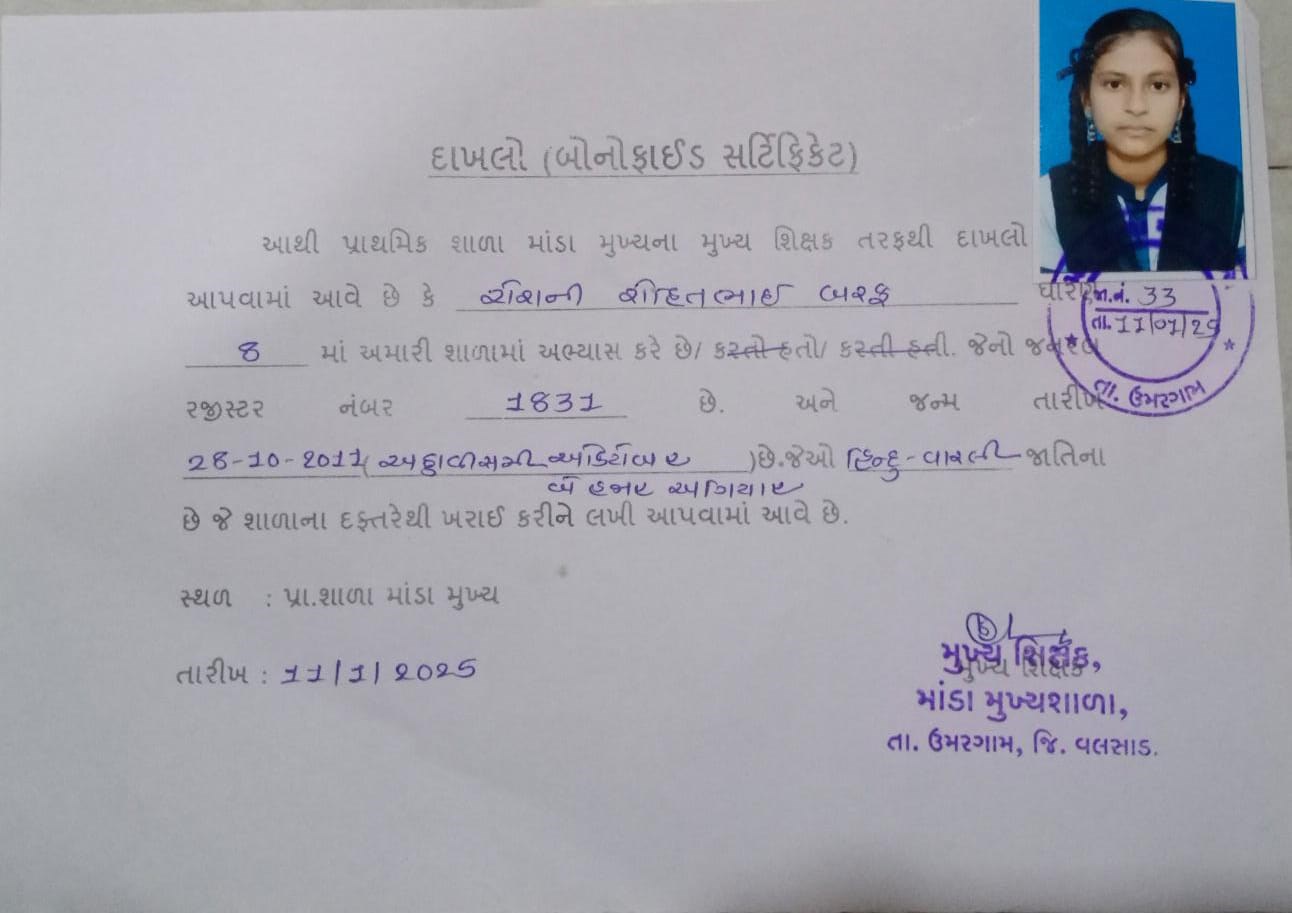 દાખલો (બોનોફાઈડ સર્ટિફિકેટ)
આથી પ્રાથમિક શાળા માંડા મુખ્યના મુખ્ય શિક્ષક તરફથી દાખલો
આપવામાં આવે છે કે રોશની રોહિતભાઈ બરફ ધોરણ
8 માં અમારી શાળામાં અભ્યાસ કરે છે/ કરતો હતો/ કરતી હતી. જેનો જનરલ
રજીસ્ટર નંબર 1831 છે. અને જન્મ તારીખ
28-10-2011( અઠ્ઠાવીસમી ઓક્ટોબર )છે.જેઓ હિન્દુ-વારલી જાતિના
બે હજાર અગિયાર
છે જે શાળાના દફ્તરેથી ખરાઈ કરીને લખી આપવામાં આવે છે.
સ્થળ : પ્રા.શાળા માંડા મુખ્ય
તારીખ : 11/1/2025
જા.નં. 33
તા. 11/01/25
તા. ઉમરગામ
મુખ્ય શિક્ષક
મુખ્ય શિક્ષક,
માંડા મુખ્યશાળા,
તા. ઉમરગામ, જિ. વલસાડ.